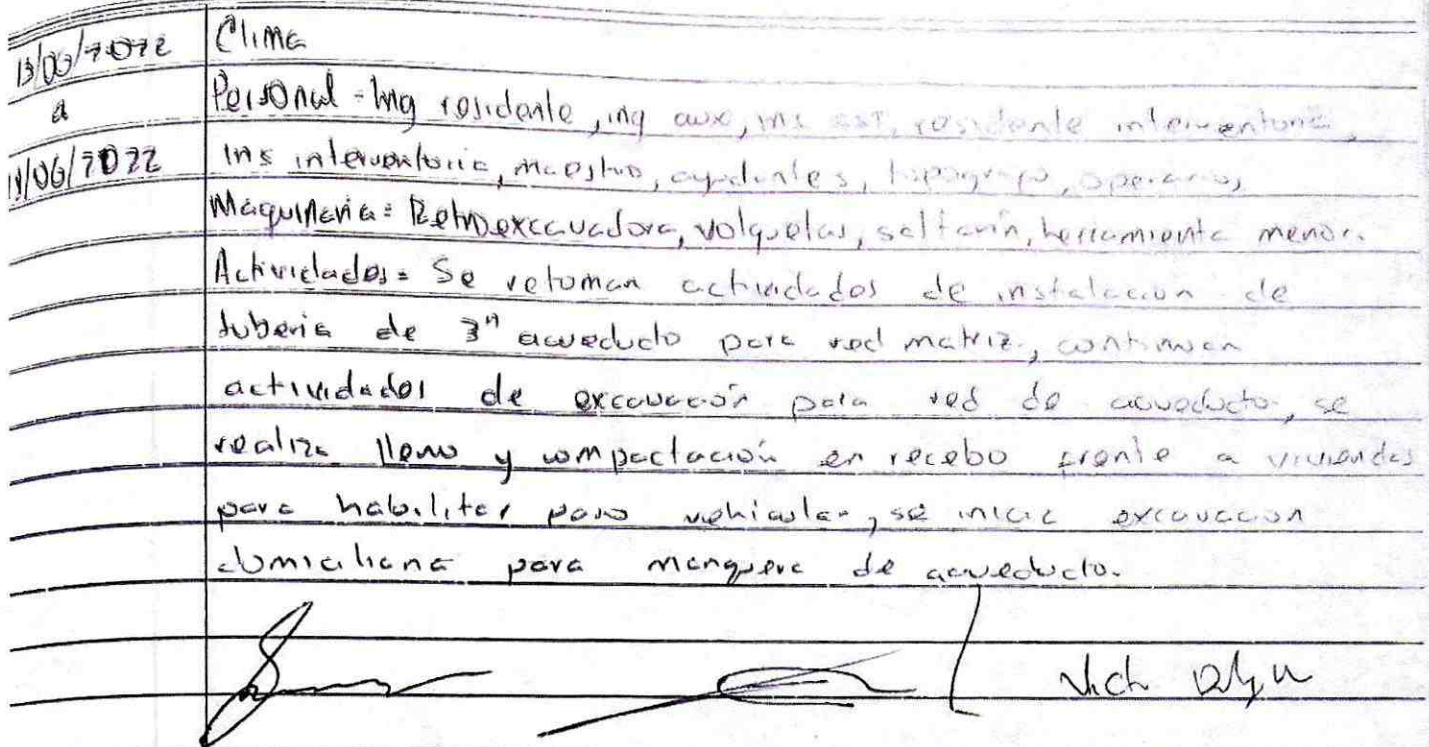 13/06/2022
Clima
a
Personal - Ing residente, ing aux, ins sst, residente interventoria,
/06/2022
ins interventoria, maestro, ayudantes, topografo, operarios
Maquinaria = Retroexcavadora, volquetas, saltarin, herramienta menor.
Actividades = Se retoman actividades de instalacion de
tuberia de 3" acueducto para red matriz, continuan
actividades de excavación para red de acueducto, se
realiza lleno y compactación en recebo frente a viviendas
para habilitar paso vehicular, se inicia excavacion
domiciliaria para manguera de acueducto.